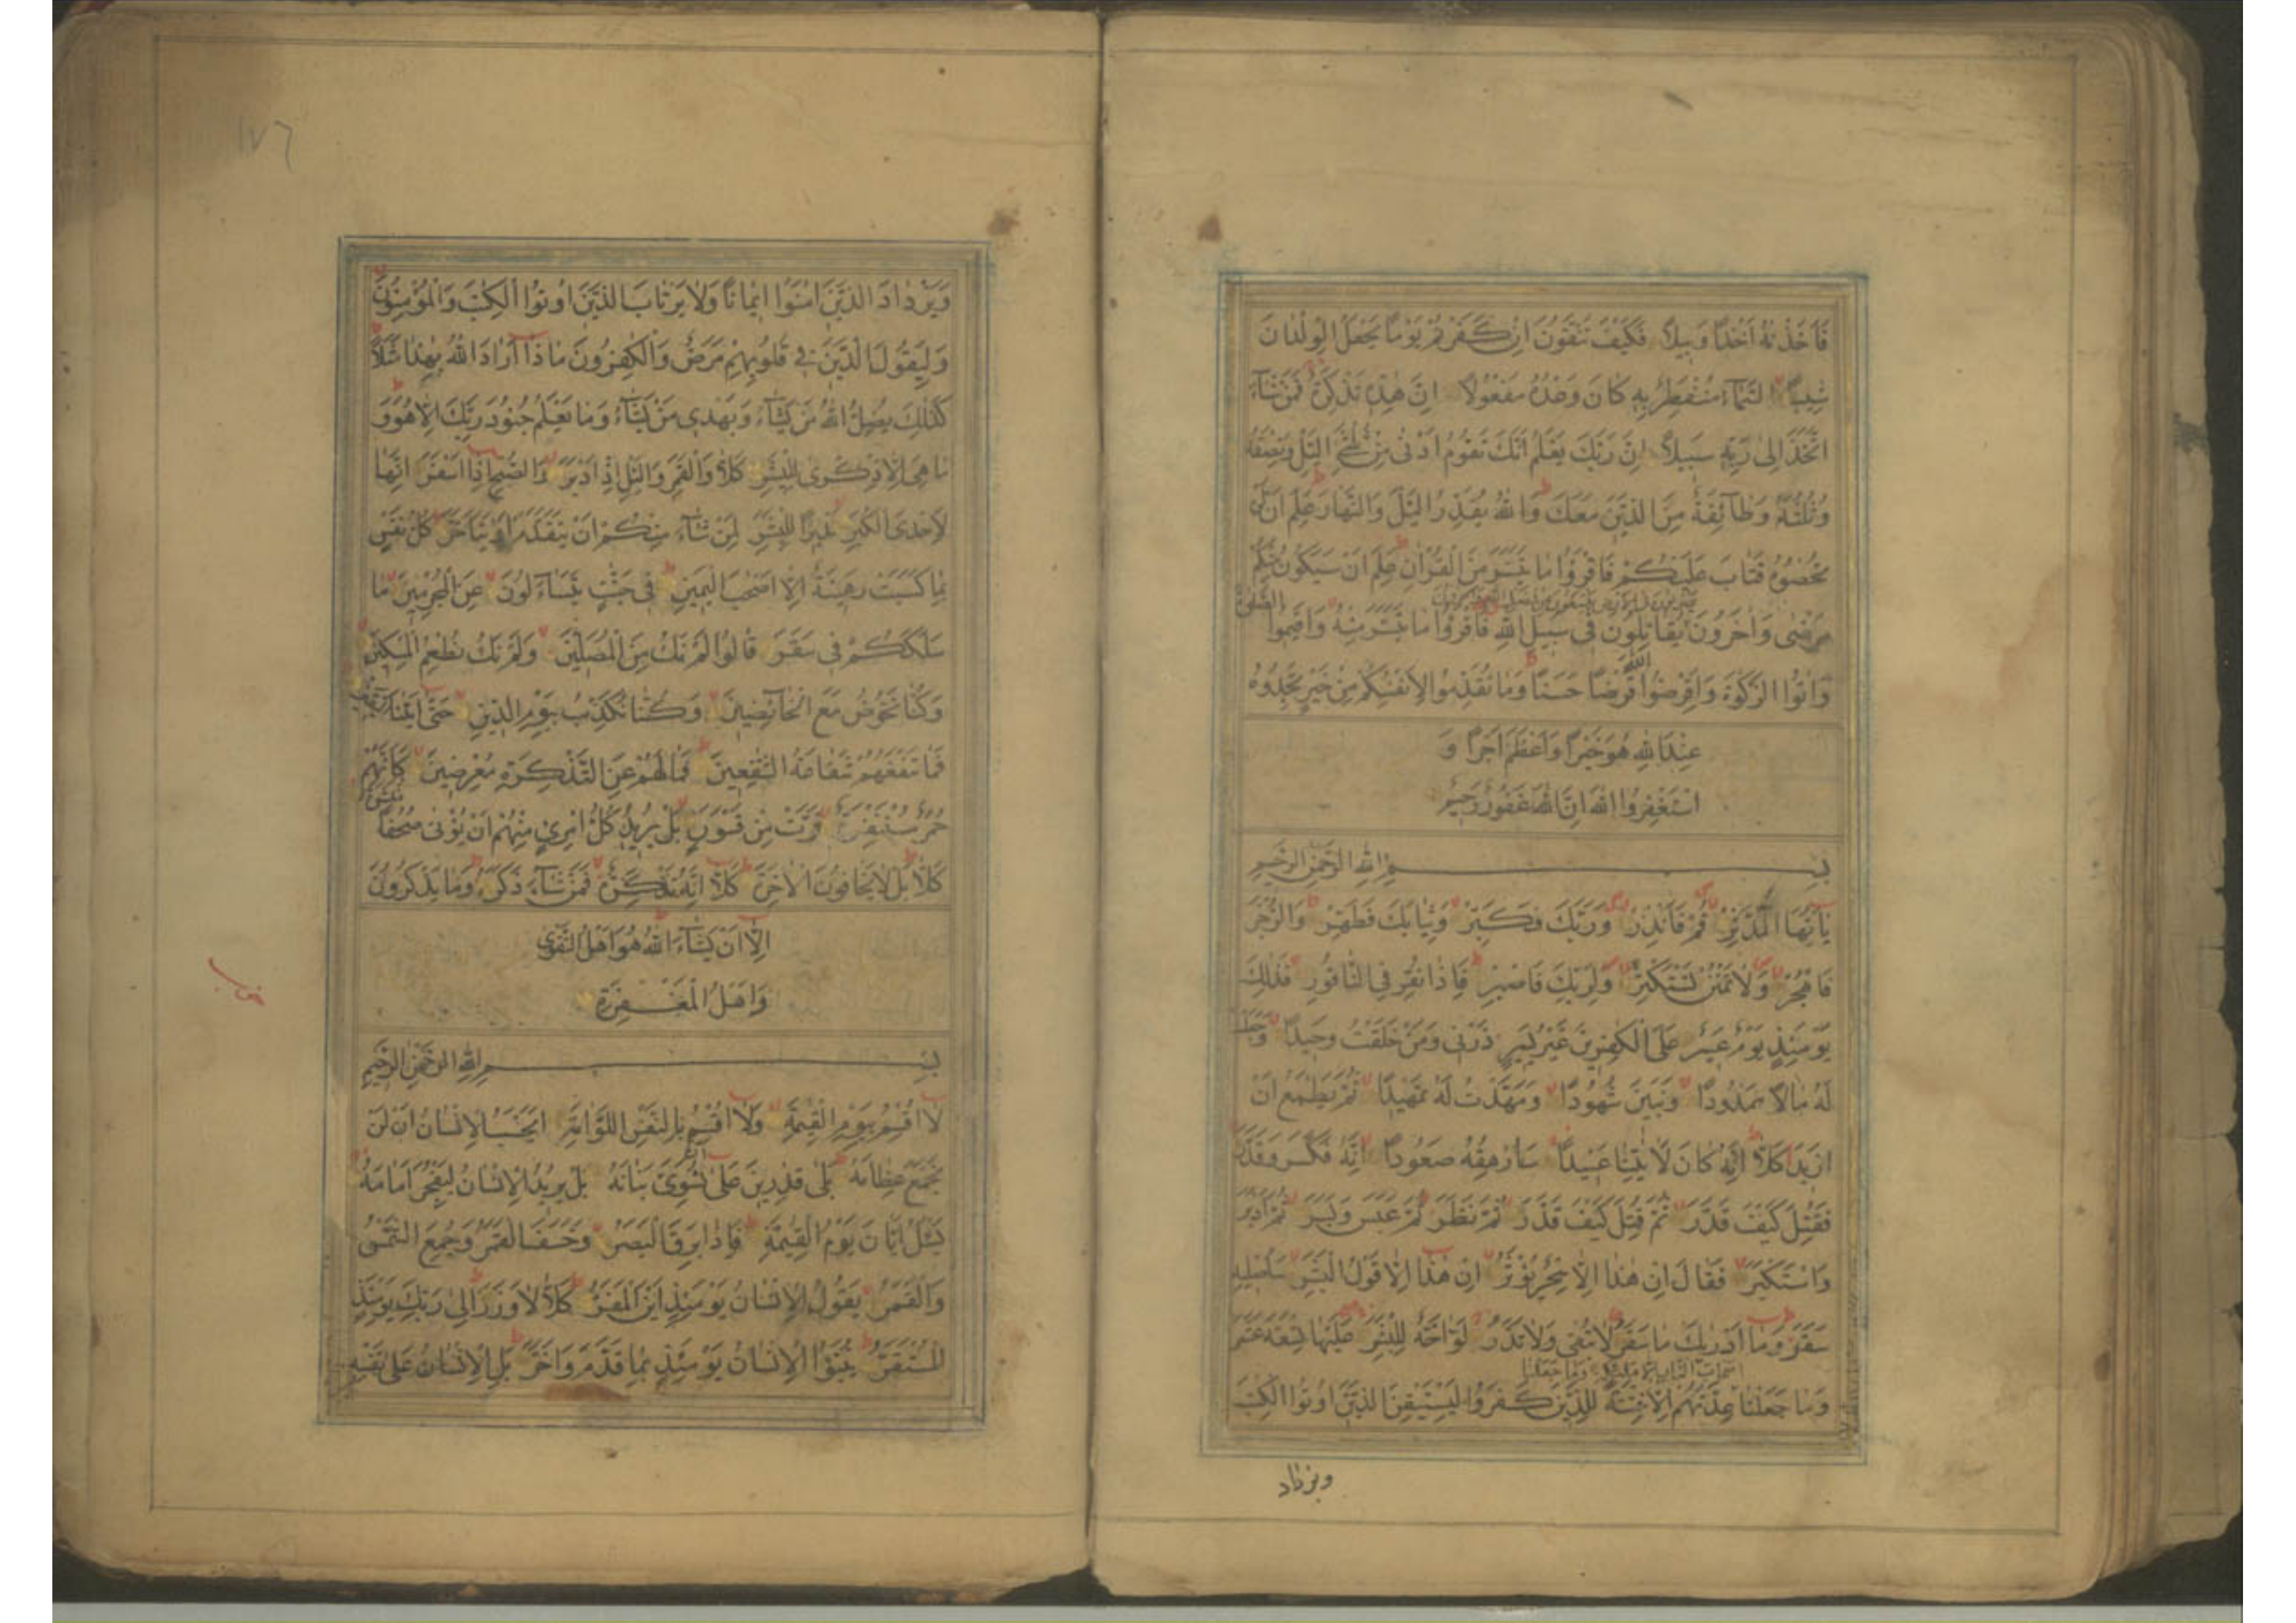 فَاَخَذْنٰهُ اَخْذًا وَبِيلًا فَكَيْفَ تَتَّقُونَ اِنْ كَفَرْتُمْ يَوْمًا يَجْعَلُ الْوِلْدَانَ
شِيبًا السَّمَآءُ مُنْفَطِرٌ بِهِ كَانَ وَعْدُهُ مَفْعُولًا اِنَّ هٰذِهِ تَذْكِرَةٌ فَمَنْ شَآءَ
اتَّخَذَ اِلٰى رَبِّهِ سَبِيلًا اِنَّ رَبَّكَ يَعْلَمُ اَنَّكَ تَقُومُ اَدْنٰى مِنْ ثُلُثَىِ الَّيْلِ وَنِصْفَهُ
وَثُلُثَهُ وَطَآئِفَةٌ مِنَ الَّذِينَ مَعَكَ وَاللّٰهُ يُقَدِّرُ الَّيْلَ وَالنَّهَارَ عَلِمَ اَنْ لَنْ
تُحْصُوهُ فَتَابَ عَلَيْكُمْ فَاقْرَؤُا مَا تَيَسَّرَ مِنَ الْقُرْاٰنِ عَلِمَ اَنْ سَيَكُونُ مِنْكُمْ
يَضْرِبُونَ فِى الْاَرْضِ يَبْتَغُونَ مِنْ فَضْلِ اللّٰهِ وَاٰخَرُونَ
مَرْضٰى وَاٰخَرُونَ يُقَاتِلُونَ فِى سَبِيلِ اللّٰهِ فَاقْرَؤُا مَا تَيَسَّرَ مِنْهُ وَاَقِيمُوا الصَّلٰوةَ
وَاٰتُوا الزَّكٰوةَ وَاَقْرِضُوا اللّٰهَ قَرْضًا حَسَنًا وَمَا تُقَدِّمُوا لِاَنْفُسِكُمْ مِنْ خَيْرٍ تَجِدُوهُ
عِنْدَ اللّٰهِ هُوَ خَيْرًا وَاَعْظَمَ اَجْرًا وَ
اسْتَغْفِرُوا اللّٰهَ اِنَّ اللّٰهَ غَفُورٌ رَحِيمٌ
بِسْمِ اللّٰهِ الرَّحْمٰنِ الرَّحِيمِ
يَآ اَيُّهَا الْمُدَّثِّرُ قُمْ فَاَنْذِرْ وَرَبَّكَ فَكَبِّرْ وَثِيَابَكَ فَطَهِّرْ وَالرُّجْزَ
فَاهْجُرْ وَلَا تَمْنُنْ تَسْتَكْثِرُ وَلِرَبِّكَ فَاصْبِرْ فَاِذَا نُقِرَ فِى النَّاقُورِ فَذٰلِكَ
يَوْمَئِذٍ يَوْمٌ عَسِيرٌ عَلَى الْكٰفِرِينَ غَيْرُ يَسِيرٍ ذَرْنِى وَمَنْ خَلَقْتُ وَحِيدًا وَجَعَلْتُ
لَهُ مَالًا مَمْدُودًا وَبَنِينَ شُهُودًا وَمَهَّدْتُ لَهُ تَمْهِيدًا ثُمَّ يَطْمَعُ اَنْ
اَزِيدَ كَلَّا اِنَّهُ كَانَ لِاٰيَاتِنَا عَنِيدًا سَاُرْهِقُهُ صَعُودًا اِنَّهُ فَكَّرَ وَقَدَّرَ
فَقُتِلَ كَيْفَ قَدَّرَ ثُمَّ قُتِلَ كَيْفَ قَدَّرَ ثُمَّ نَظَرَ ثُمَّ عَبَسَ وَبَسَرَ ثُمَّ اَدْبَرَ
وَاسْتَكْبَرَ فَقَالَ اِنْ هٰذَا اِلَّا سِحْرٌ يُؤْثَرُ اِنْ هٰذَا اِلَّا قَوْلُ الْبَشَرِ سَاُصْلِيهِ
سَقَرَ وَمَآ اَدْرٰيكَ مَا سَقَرُ لَا تُبْقِى وَلَا تَذَرُ لَوَّاحَةٌ لِلْبَشَرِ عَلَيْهَا تِسْعَةَ عَشَرَ
اَصْحَابَ النَّارِ اِلَّا مَلٰئِكَةً وَمَا جَعَلْنَا
وَمَا جَعَلْنَا عِدَّتَهُمْ اِلَّا فِتْنَةً لِلَّذِينَ كَفَرُوا لِيَسْتَيْقِنَ الَّذِينَ اُوتُوا الْكِتٰبَ
ويزداد
١٧٦
وَيَزْدَادَ الَّذِينَ اٰمَنُوا اِيمَانًا وَلَا يَرْتَابَ الَّذِينَ اُوتُوا الْكِتٰبَ وَالْمُؤْمِنُونَ
وَلِيَقُولَ الَّذِينَ فِى قُلُوبِهِمْ مَرَضٌ وَالْكٰفِرُونَ مَاذَآ اَرَادَ اللّٰهُ بِهٰذَا مَثَلًا
كَذٰلِكَ يُضِلُّ اللّٰهُ مَنْ يَشَآءُ وَيَهْدِى مَنْ يَشَآءُ وَمَا يَعْلَمُ جُنُودَ رَبِّكَ اِلَّا هُوَ وَ
مَا هِىَ اِلَّا ذِكْرٰى لِلْبَشَرِ كَلَّا وَالْقَمَرِ وَالَّيْلِ اِذْ اَدْبَرَ وَالصُّبْحِ اِذَا اَسْفَرَ اِنَّهَا
لَاِحْدَى الْكُبَرِ نَذِيرًا لِلْبَشَرِ لِمَنْ شَآءَ مِنْكُمْ اَنْ يَتَقَدَّمَ اَوْ يَتَاَخَّرَ كُلُّ نَفْسٍ
بِمَا كَسَبَتْ رَهِينَةٌ اِلَّا اَصْحٰبَ الْيَمِينِ فِى جَنَّاتٍ يَتَسَآءَلُونَ عَنِ الْمُجْرِمِينَ مَا
سَلَكَكُمْ فِى سَقَرَ قَالُوا لَمْ نَكُ مِنَ الْمُصَلِّينَ وَلَمْ نَكُ نُطْعِمُ الْمِسْكِينَ
وَكُنَّا نَخُوضُ مَعَ الْخَآئِضِينَ وَكُنَّا نُكَذِّبُ بِيَوْمِ الدِّينِ حَتّٰى اَتٰينَا الْيَقِينُ
فَمَا تَنْفَعُهُمْ شَفَاعَةُ الشَّافِعِينَ فَمَا لَهُمْ عَنِ التَّذْكِرَةِ مُعْرِضِينَ كَاَنَّهُمْ
حُمُرٌ مُسْتَنْفِرَةٌ فَرَّتْ مِنْ قَسْوَرَةٍ بَلْ يُرِيدُ كُلُّ امْرِئٍ مِنْهُمْ اَنْ يُؤْتٰى صُحُفًا مُنَشَّرَةً
كَلَّا بَلْ لَا يَخَافُونَ الْاٰخِرَةَ كَلَّا اِنَّهُ تَذْكِرَةٌ فَمَنْ شَآءَ ذَكَرَهُ وَمَا يَذْكُرُونَ
اِلَّا اَنْ يَشَآءَ اللّٰهُ هُوَ اَهْلُ التَّقْوٰى
وَاَهْلُ الْمَغْفِرَةِ
حزب
بِسْمِ اللّٰهِ الرَّحْمٰنِ الرَّحِيمِ
لَآ اُقْسِمُ بِيَوْمِ الْقِيٰمَةِ وَلَآ اُقْسِمُ بِالنَّفْسِ اللَّوَّامَةِ اَيَحْسَبُ الْاِنْسَانُ اَنْ لَنْ
نَجْمَعَ عِظَامَهُ بَلٰى قَادِرِينَ عَلٰى اَنْ نُسَوِّىَ بَنَانَهُ بَلْ يُرِيدُ الْاِنْسَانُ لِيَفْجُرَ اَمَامَهُ
يَسْئَلُ اَيَّانَ يَوْمُ الْقِيٰمَةِ فَاِذَا بَرِقَ الْبَصَرُ وَخَسَفَ الْقَمَرُ وَجُمِعَ الشَّمْسُ
وَالْقَمَرُ يَقُولُ الْاِنْسَانُ يَوْمَئِذٍ اَيْنَ الْمَفَرُّ كَلَّا لَا وَزَرَ اِلٰى رَبِّكَ يَوْمَئِذٍ
الْمُسْتَقَرُّ يُنَبَّؤُا الْاِنْسَانُ يَوْمَئِذٍ بِمَا قَدَّمَ وَاَخَّرَ بَلِ الْاِنْسَانُ عَلٰى نَفْسِهِ